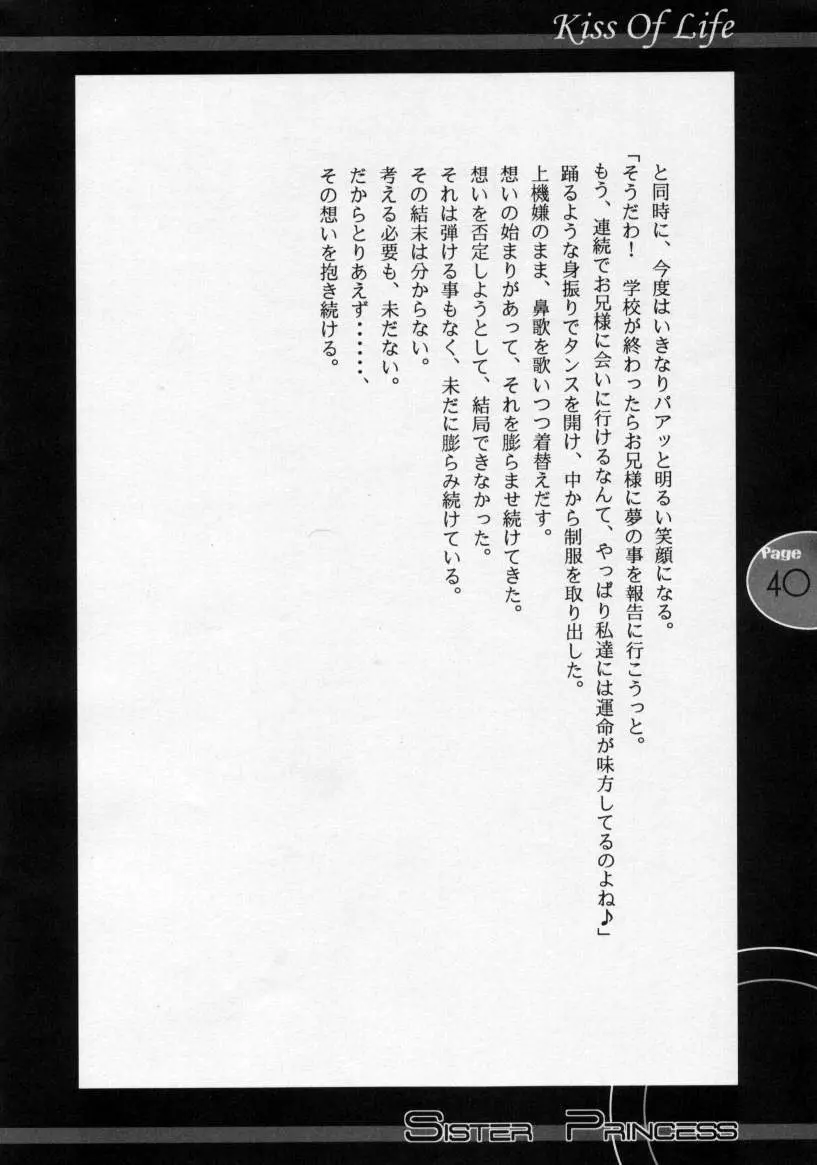 Kiss Of Life
と同時に、今度はいきなりパアッと明るい笑顔になる。
「そうだわ！　学校が終わったらお兄様に夢の事を報告に行こうっと。
もう、連続でお兄様に会いに行けるなんて、やっぱり私達には運命が味方してるのよね♪」
踊るような身振りでタンスを開け、中から制服を取り出した。
上機嫌のまま、鼻歌を歌いつつ着替えだす。
想いの始まりがあって、それを膨らませ続けてきた。
想いを否定しようとして、結局できなかった。
それは弾ける事もなく、未だに膨らみ続けている。
その結末は分からない。
考える必要も、未だない。
だからとりあえず・・・・・・、
その想いを抱き続ける。
Page
40
SISTER PRINCESS